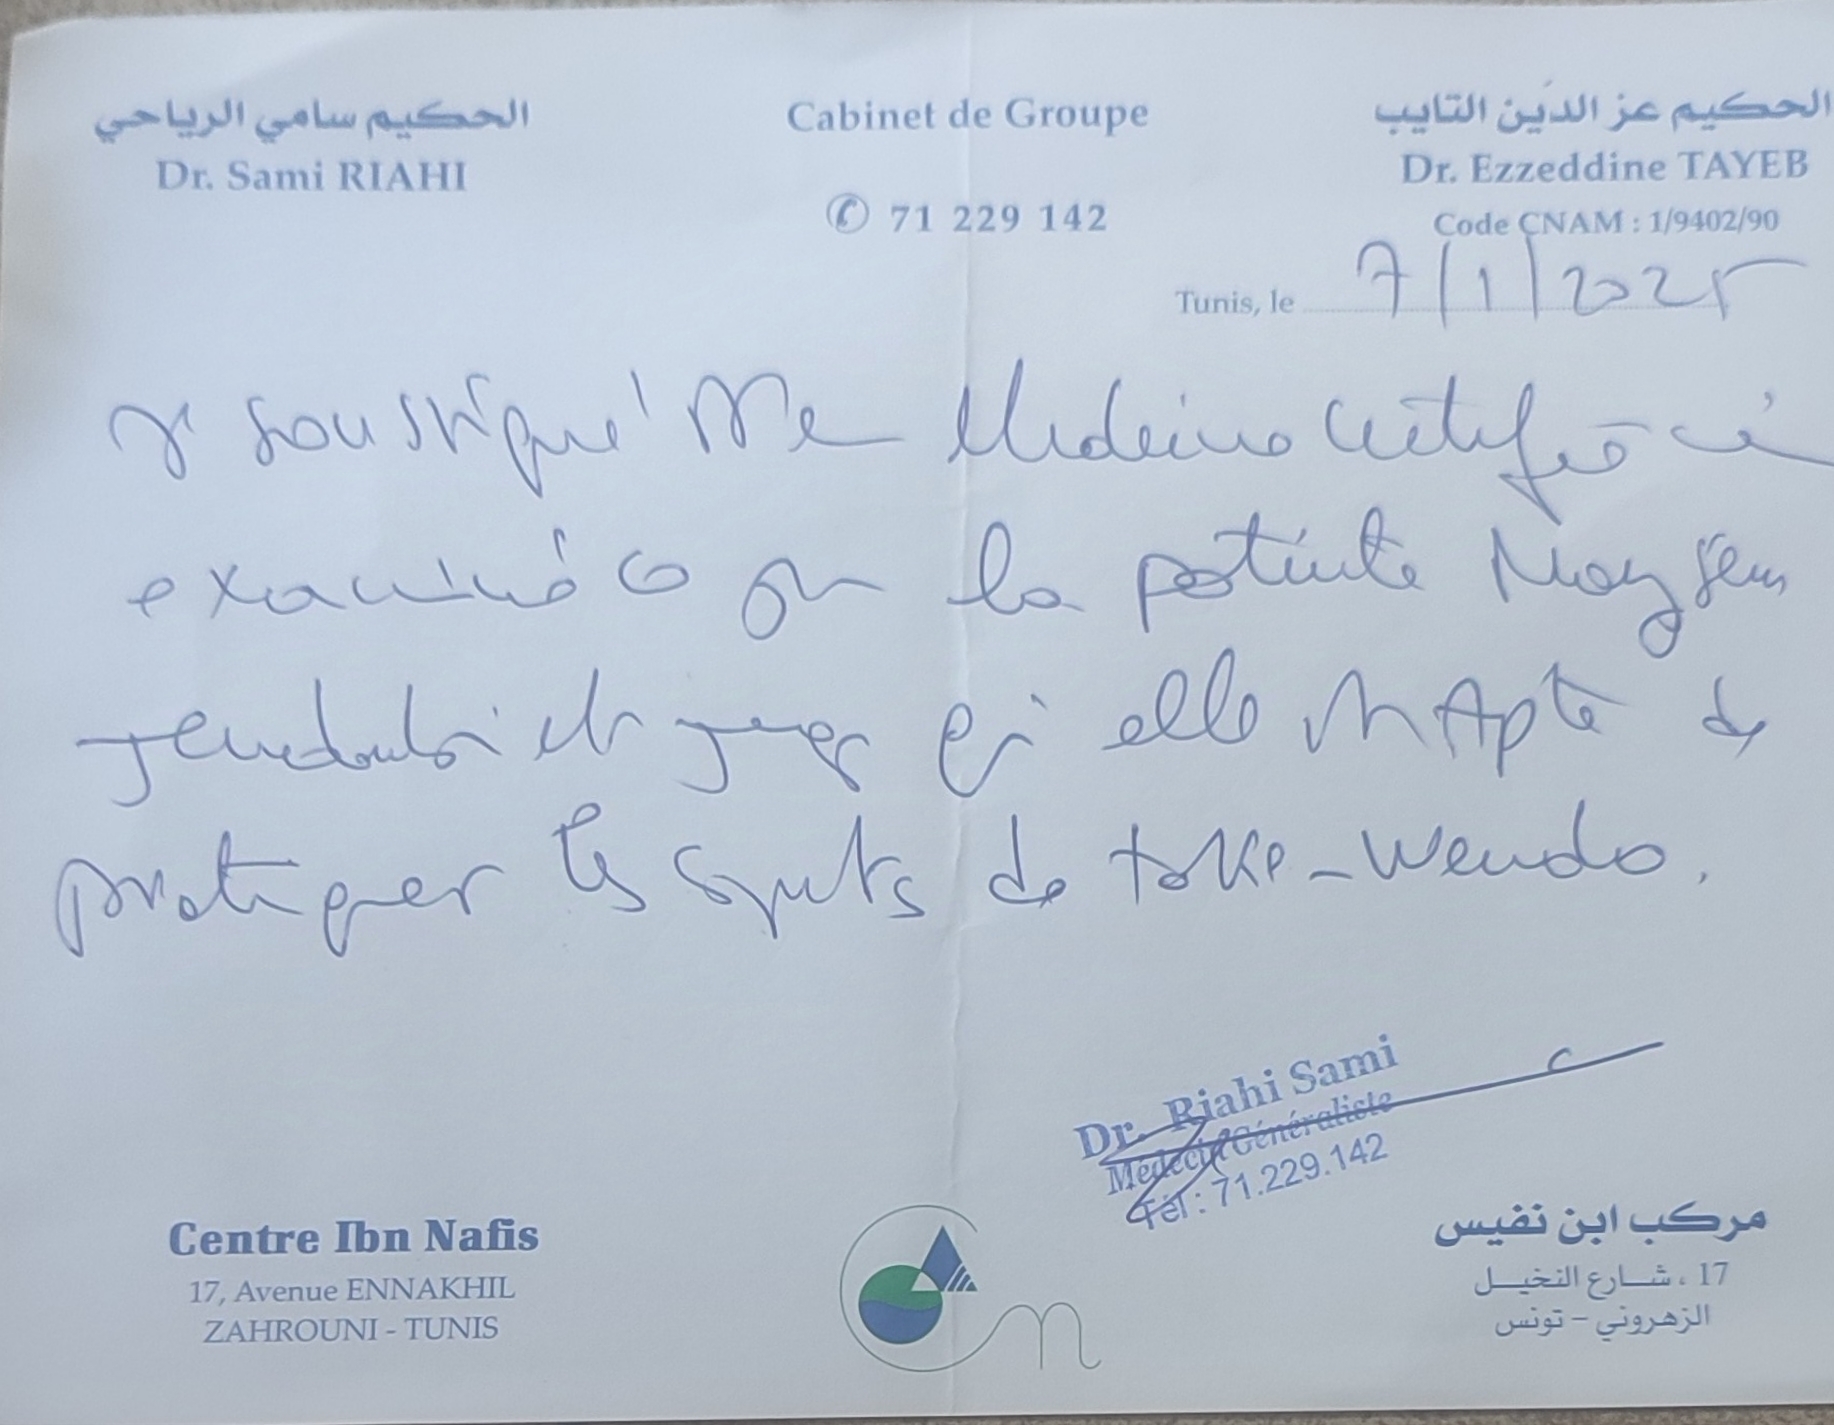 الحكيم سامي الرياحي
Dr. Sami RIAHI
Cabinet de Groupe
✆ 71 229 142
الحكيم عز الدين التايب
Dr. Ezzeddine TAYEB
Code CNAM : 1/9402/90
Tunis, le 7/1/2025
soussigné certifie
examiné la patiente Mayssem
jendoubi elle Apte de
pratiquer les sports de take-wendo.
Dr. Riahi Sami
Médecin Généraliste
Tél : 71.229.142
Centre Ibn Nafis
17, Avenue ENNAKHIL
ZAHROUNI - TUNIS
مركب ابن نفيس
17 ، شارع النخيل
الزهروني - تونس